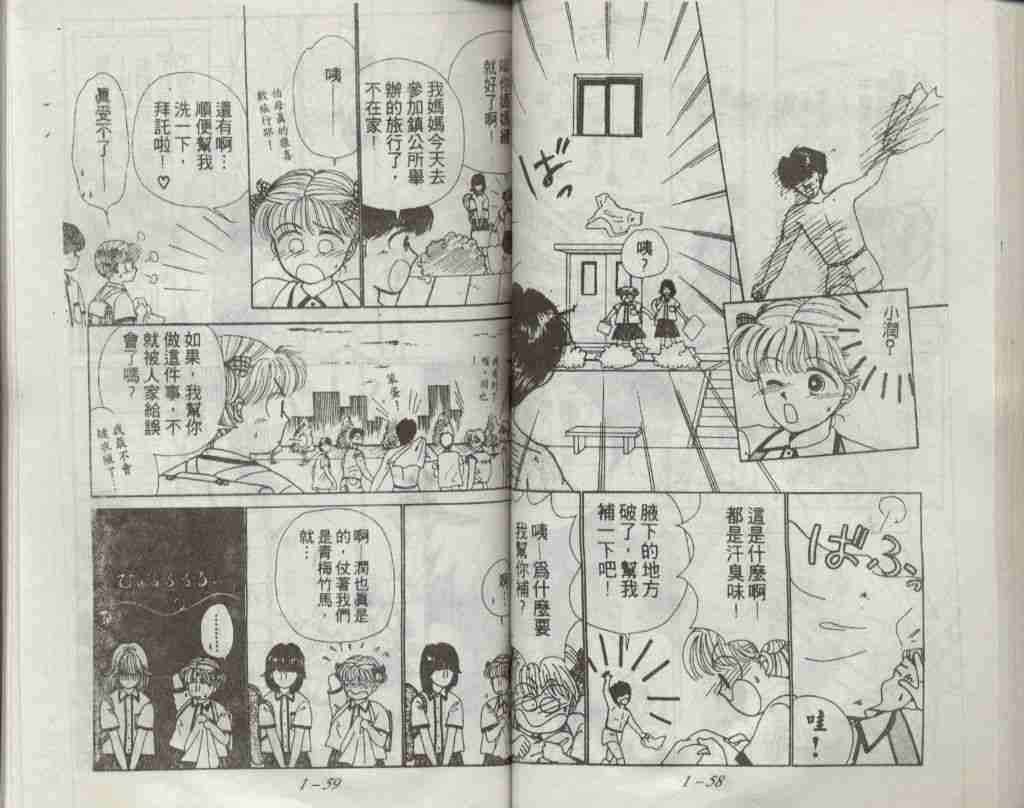 小潤？
咦？
ば
ばふっ
哇！
這是什麼啊—
都是汗臭味！
腋下的地方
破了，幫我
補一下吧！
咦—為什麼要
我幫你補？
1-58
就好了啊！
我媽媽今天去
參加鎮公所舉
辦的旅行了，
不在家！
咦——
伯母真的很喜
歡旅行耶！
還有啊…
順便幫我
洗一下，
拜託啦！♡
真受不了——
笨蛋！
如果，我幫你
做這件事，不
就被人家給誤
會了嗎？
啊—潤也真是
的，仗著我們
是青梅竹馬，
就…
………
1-59